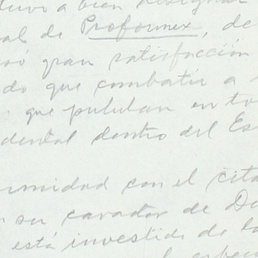 tuvo a bien designar
al de Proformex, de
só gran satisfacción
do que combatir a
que pululan en to
dental dentro del Es
rmidad con el cita
su cavador de De
está investido de la
el espec